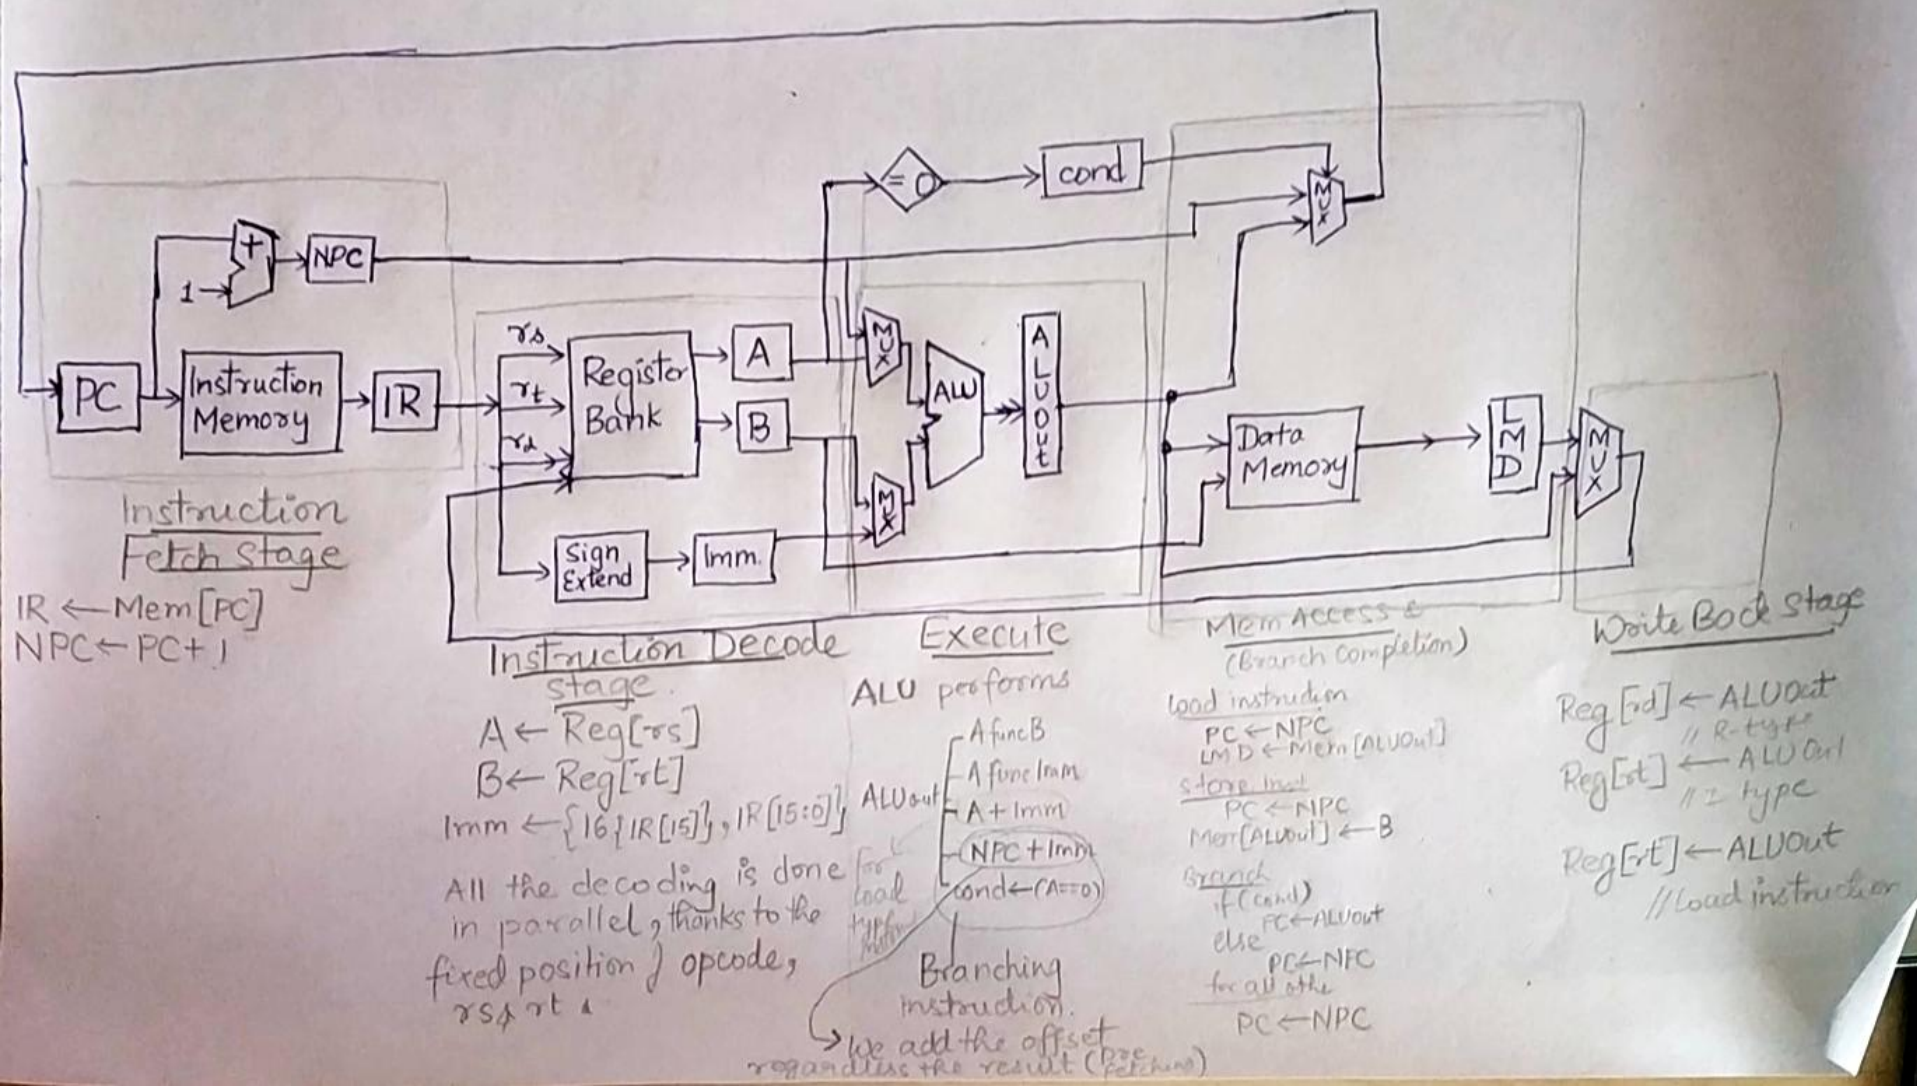 = 0
cond
MUX
+
NPC
1
PC
Instruction
Memory
IR
rs
rt
rd
Register
Bank
A
B
Sign
Extend
Imm.
MUX
MUX
ALU
ALUOut
Data
Memory
LMD
MUX
Instruction
Fetch Stage
IR ← Mem[PC]
NPC ← PC+1
Instruction Decode
stage.
A ← Reg[rs]
B ← Reg[rt]
Imm ← {16{IR[15]}, IR[15:0]}
All the decoding is done
in parallel, thanks to the
fixed position of opcode,
rs, rt
Execute
ALU performs
ALUout
A func B
A func Imm
A + Imm
NPC + Imm
cond ← (A==0)
for
load
type
Branching
instruction.
We add the offset
regardless the result
Mem Access &
(Branch Completion)
Load instruction
PC ← NPC
LMD ← Mem[ALUOut]
store inst
PC ← NPC
Mem[ALUout] ← B
Branch
if (cond)
PC ← ALUout
else
PC ← NPC
for all othe
PC ← NPC
Write Back Stage
Reg[rd] ← ALUOut
// R-type
Reg[rt] ← ALUOut
// I type
Reg[rt] ← ALUOut
// Load instruction